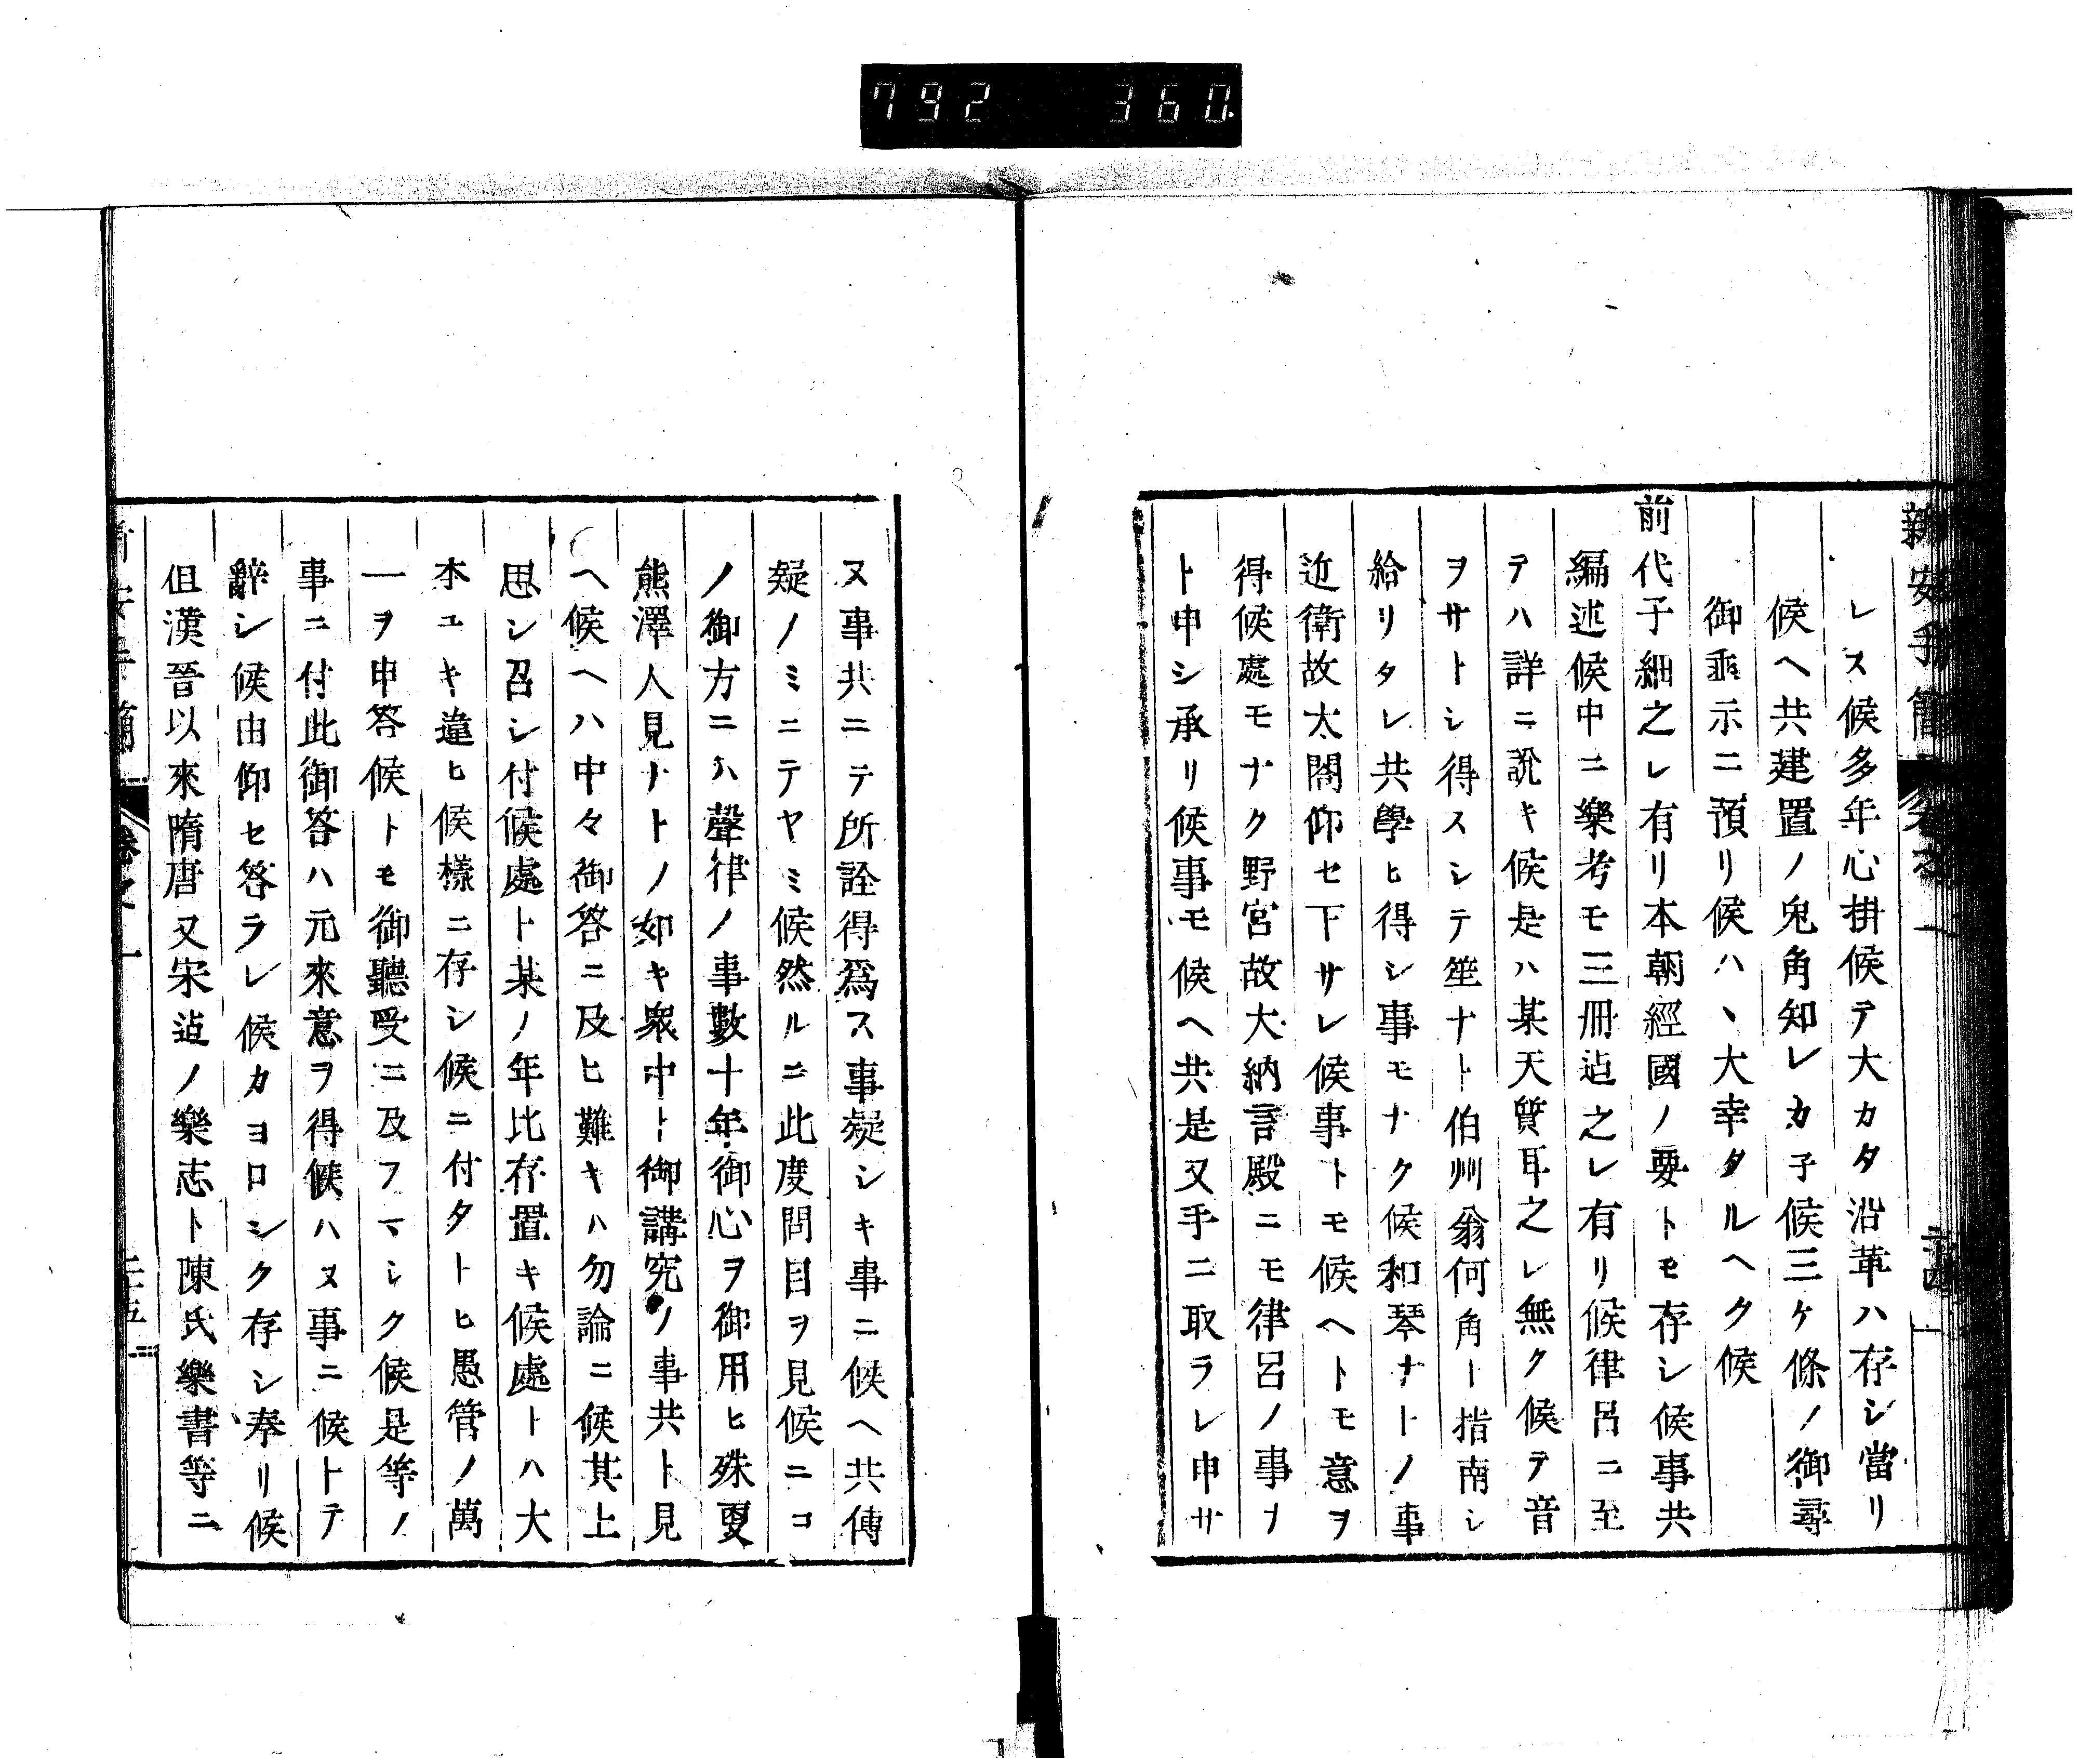 792 360
新安手簡 卷之一
レス候多年心掛候テ大カタ沿革ハ存シ當リ
候ヘ共建置ノ兎角知レカ子候三ケ條ノ御尋
御垂示ニ預リ候ハヽ大幸タルヘク候
前代子細之レ有リ本朝經國ノ要トモ存シ候事共
編述候中ニ樂考モ三冊迠之レ有リ候律呂ニ至
テハ詳ニ說キ候是ハ某天質耳之レ無ク候テ音
ヲサトシ得スシテ笙ナト伯州翁何角ト指南シ
給リタレ共學ヒ得シ事モナク候和琴ナトノ事
近衛故太閤仰セ下サレ候事トモ候ヘトモ意ヲ
得候處モナク野宮故大納言殿ニモ律呂ノ事ヲ
ト申シ承リ候事モ候ヘ共是又手ニ取ラレ申サ
ヌ事共ニテ所詮得爲ス事疑シキ事ニ候ヘ共傳
疑ノミニテヤミ候然ルニ此度問目ヲ見候ニコ
ノ御方ニハ聲律ノ事數十年御心ヲ御用ヒ殊更
熊澤人見ナトノ如キ衆中ト御講究ノ事共ト見
ヘ候ヘハ中々御答ニ及ヒ難キハ勿論ニ候其上
思シ召シ付候處ト某ノ年比存置キ候處トハ大
本ユキ違ヒ候樣ニ存シ候ニ付タトヒ愚管ノ萬
一ヲ申答候トモ御聽受ニ及フマシク候是等ノ
事ニ付此御答ハ元來意ヲ得候ハヌ事ニ候トテ
辭シ候由仰セ答ラレ候カヨロシク存シ奉リ候
但漢晉以來隋唐又宋迠ノ樂志ト陳氏樂書等ニ
新安手簡 卷之一 二十五